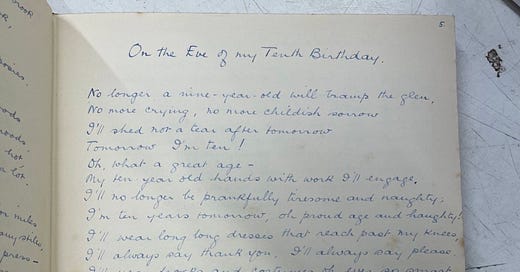 5
On the Eve of my Tenth Birthday.
No longer a nine-year-old will tramp the glen,
No more crying, no more childish sorrow
I'll shed not a tear after tomorrow
Tomorrow I'm ten!
Oh, what a great age –
My ten year old hands with work I'll engage.
I'll no longer be prankfully tiresome and naughty;
I'm ten years tomorrow, oh proud age and haughty!
I'll wear long long dresses that reach past my knees
I'll always say thank you, I'll always say please